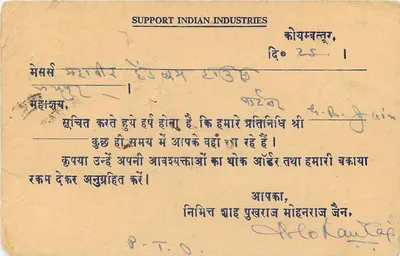 SUPPORT INDIAN INDUSTRIES
कोयम्बत्तूर,
दि० 25 ।
मेसर्स महावीर हैंडलूम हाउस
।
महाशय,
सूचित करते हुये हर्ष होता है, कि हमारे प्रतिनिधि श्री G. R. Jain
कुछ ही समय में आपके वहाँ आ रहे हैं।
कृपया उन्हें अपनी आवश्यक्ताओं का थोक ऑर्डर तथा हमारी बकाया
रकम देकर अनुग्रहित करें।
आपका,
निमित्त शाह पुखराज मोहनराज जैन,
P. T. O.